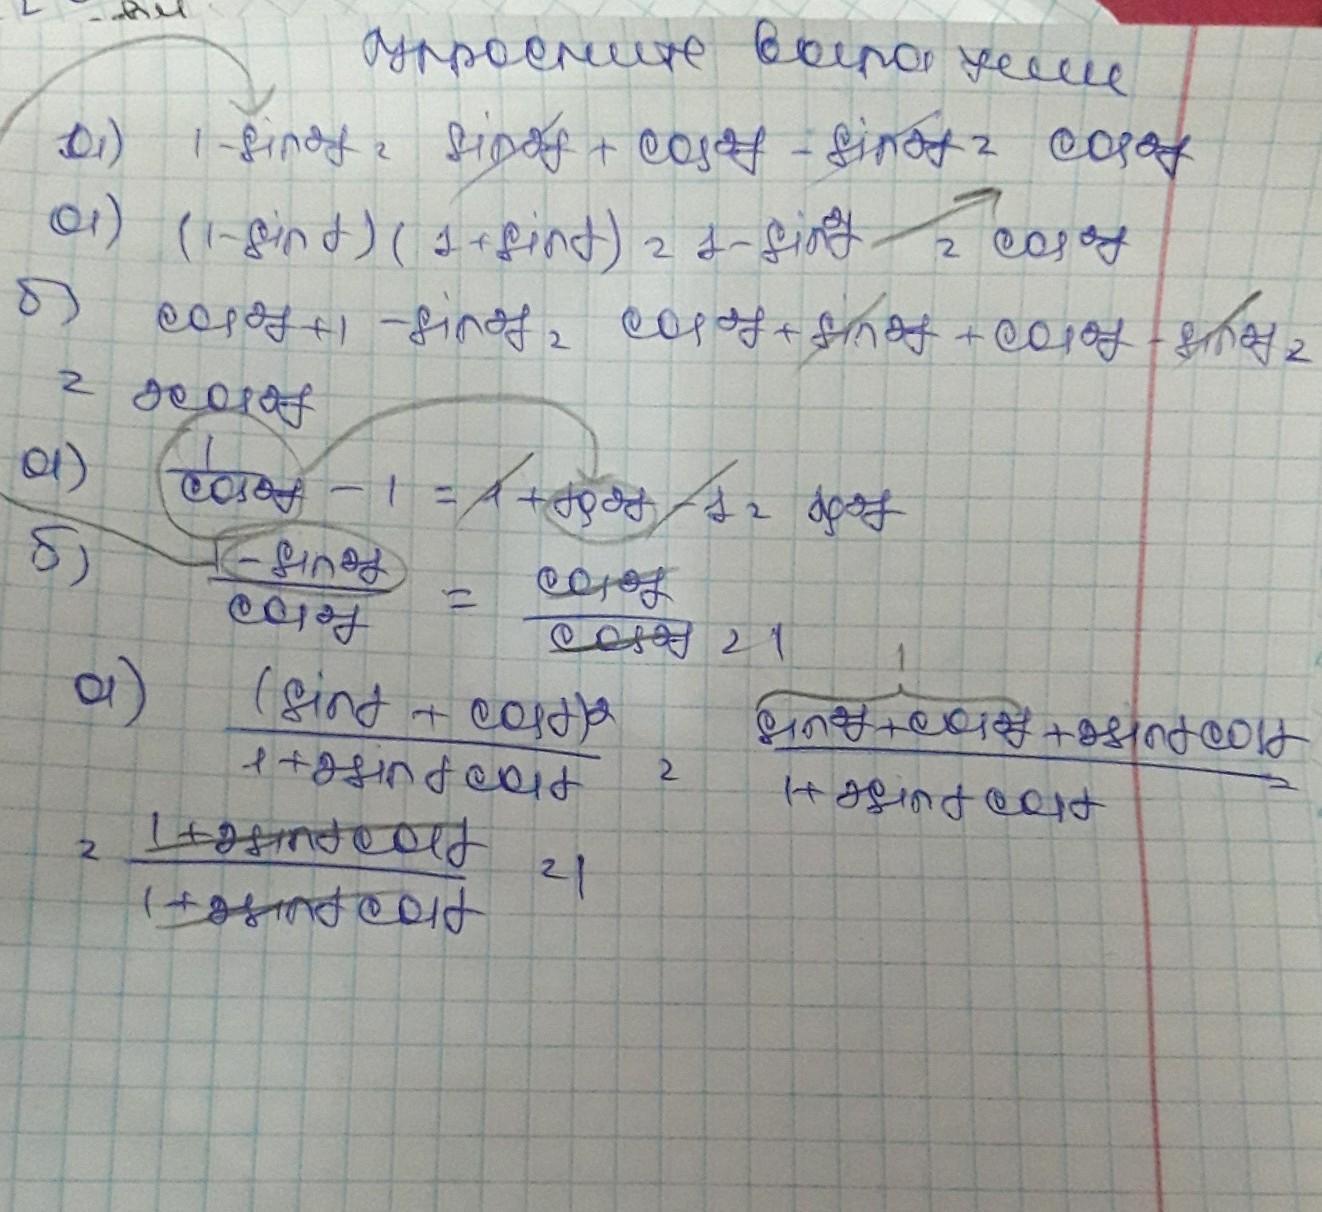 Упростите выражение
а) 1 - sin²α = sin²α + cos²α - sin²α = cos²α
а) (1 - sin α)(1 + sin α) = 1 - sin²α = cos²α
б) cos²α + 1 - sin²α = cos²α + sin²α + cos²α - sin²α =
= 2cos²α
а) 1/cos²α - 1 = 1 + tg²α - 1 = tg²α
б) (1 - sin²α)/cos²α = cos²α/cos²α = 1
1
а) (sin α + cos α)²/(1 + 2sin α cos α) = (sin²α + cos²α + 2sin α cos α)/(1 + 2sin α cos α) =
= (1 + 2sin α cos α)/(1 + 2sin α cos α) = 1